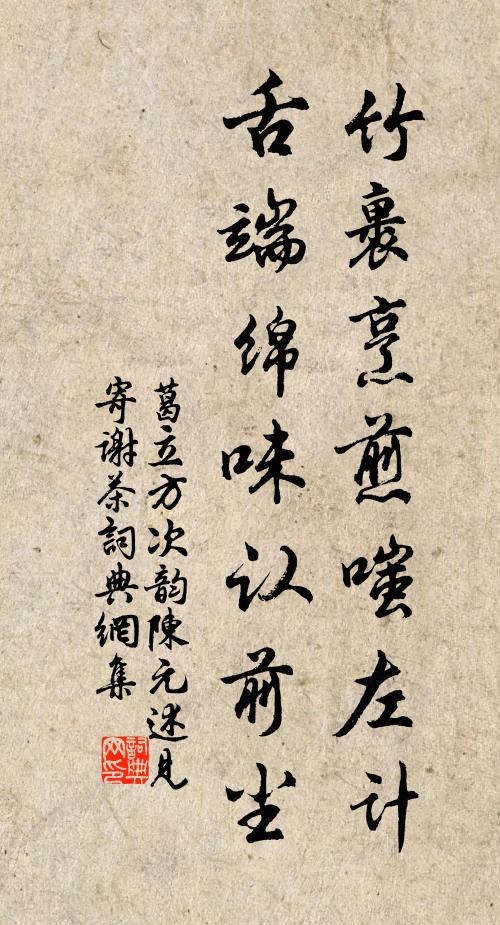 竹裹烹煎嗤左计
舌端绵味认前尘
葛立方次韵陳元述見
寄谢茶詞典網集
詞典網印